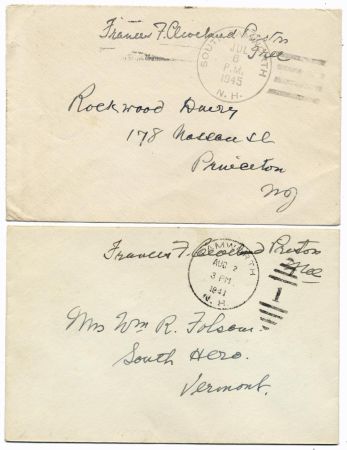 Frances F. Cleveland Preston
Free
SOUTH TAMWORTH
JUL
6
P.M.
1945
N. H.
Rockwood Dairy
178 Nassau St
Princeton
NJ
Frances F. Cleveland Preston
Free
TAMWORTH
AUG 2
3 PM
1941
N. H.
1
Mrs Wm R. Folsom.
South Hero.
Vermont.